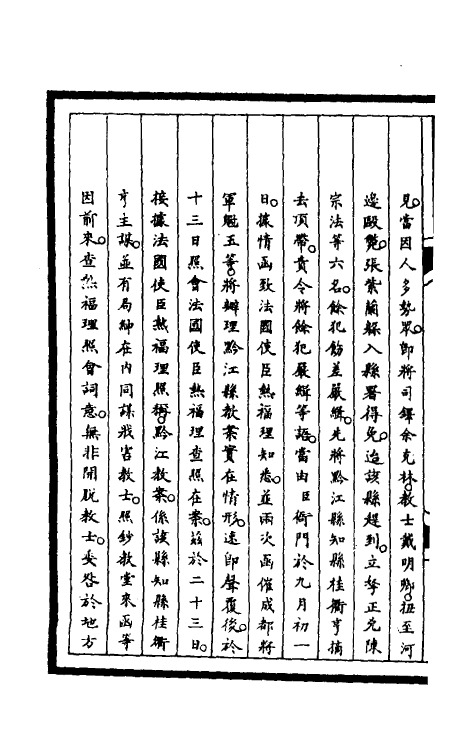 見當因人多勢眾即將司鐸余克林教士戴明卿扭至河
邊毆斃張紫蘭躲入縣署得免迨該縣趕到立拏正兇陳
宗法等六名餘犯飭差嚴緝先將黔江縣知縣桂衢亨摘
去頂帶責令將餘犯嚴緝等語當由臣衙門於九月初一
日據情函致法國使臣熱福理知悉並兩次函催成都將
軍魁玉等將辦理黔江縣教案實在情形迅即聲覆後於
十三日照會法國使臣熱福理查照在案茲於二十三日
接據法國使臣熱福理照稱黔江教案係該縣知縣桂衢
亨主謀並有局紳在內同謀戕害教士照鈔教堂來函等
因前來查熱福理照會詞意無非開脫教士委咎於地方